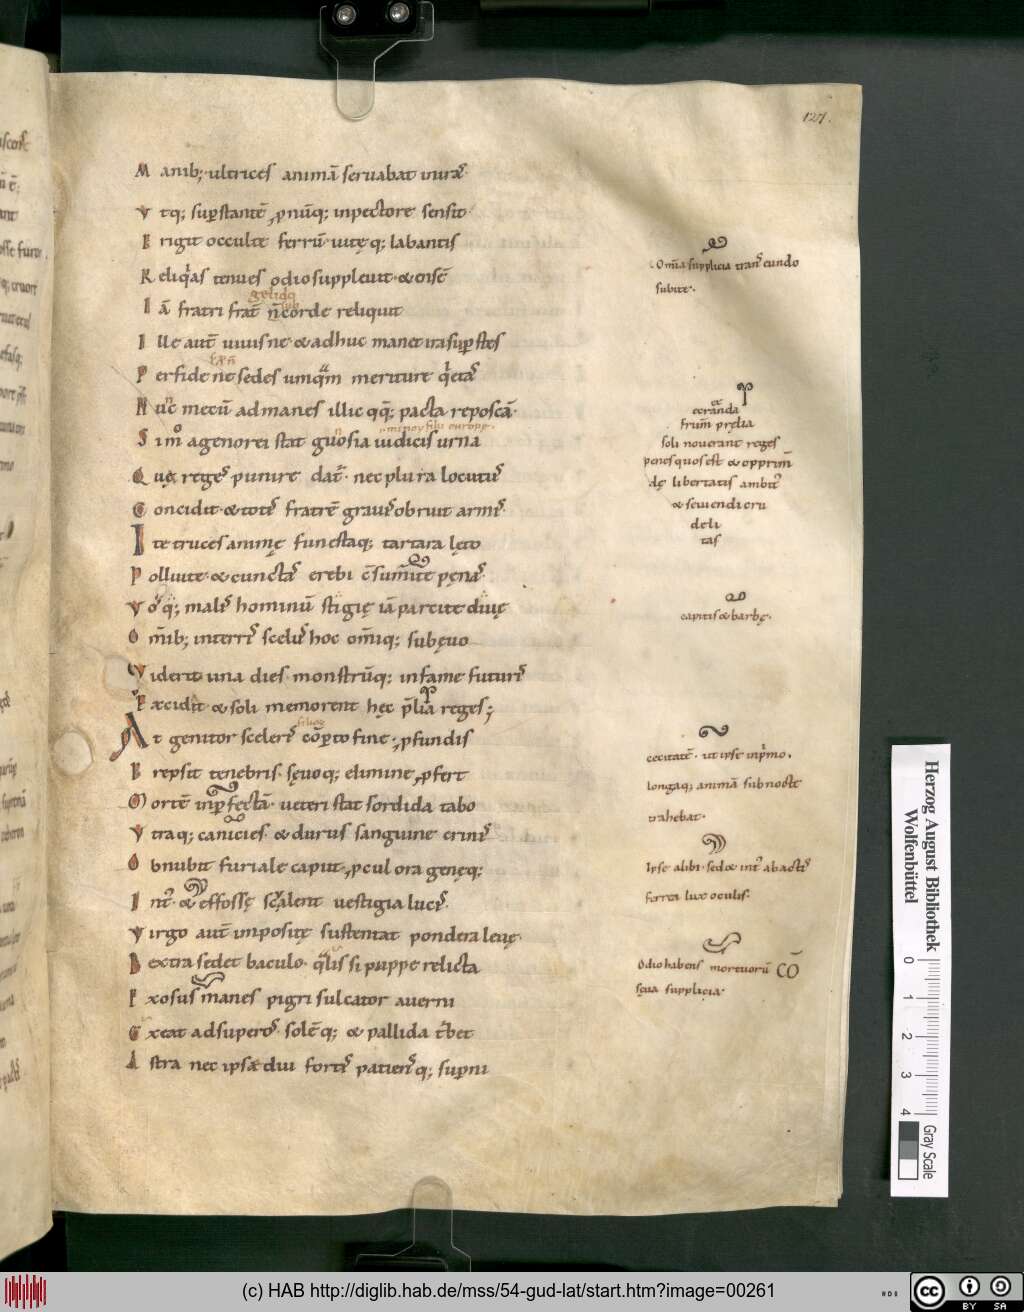 127.
M anib; ultrices animā seruabat inirā
V tq; supstantē pnūq; inpectore sensit
E rigit occulte ferrū uitęq; labantis
R eliqͥas tenues odio suppleuit & ensē
gelido
sub
I ā fratri frat̄ n̄ corde reliquit
I lle aut̄ uiuisne & adhuc manet ira supstes
P erfide ne sedes umqͣm meriture qͥetas
H uc mecū admanes illic qq; pacta reposcā
minoys filii europę
S imͦ agenorei stat gnosia iudicis urna
Q uę reges punire dat̄ nec plura locutus
C oncidit & totis fratrē grauis obruit armis
I te truces animę funestaq; tartara lęto
P olluite & cunctas erebi c̄sumite pęnas
V oͦsq; malis hominū stigię iā parcite diuę
O m̄ib; interris scelus hoc om̄iq; subęuo
V iderit una dies monstrūq; infame futuris
E xcidit & soli memorent hęc p̄lia reges;
A t genitor sceleris cōperto fine pfundis
E repsit tenebris sęuoq; elimine pfert
M ortē inpfectā ueteri stat sordida tabo
V traq; canicies & durus sanguine crinis
O bnubit furiale caput pcul ora genęq;
I nt̄ & effossę sqͣlent uestigia lucis
V irgo aut̄ impositę sustentat pondera leuę
D extra sedet baculo qͣlis si puppe relicta
E xosus manes pigri sulcator auerni
E xeat ad superos solēq; & pallida t̄bet
A stra nec ipsæ diu fortis patiensq; supni
Om̄ia supplicia transeundo
subite.
ex
ecranda
frum pręlia
soli nouerant reges
penes quos est & opprim̄
dę libertatis ambitͥ
& seuiendi cru
deli
tas
capitis & barbę.
cecitatē. ut ipse inpͥmo.
longaq; animā sub nocte
trahebat.
Ipse alibi sed & int̄ abactis
ferrea lux oculis.
Odio habens mortuorū CŌ
sęua supplicia.
Herzog August Bibliothek
Wolfenbüttel
0 1 2 3 4
Gray Scale
(c) HAB http://diglib.hab.de/mss/54-gud-lat/start.htm?image=00261
cc BY SA